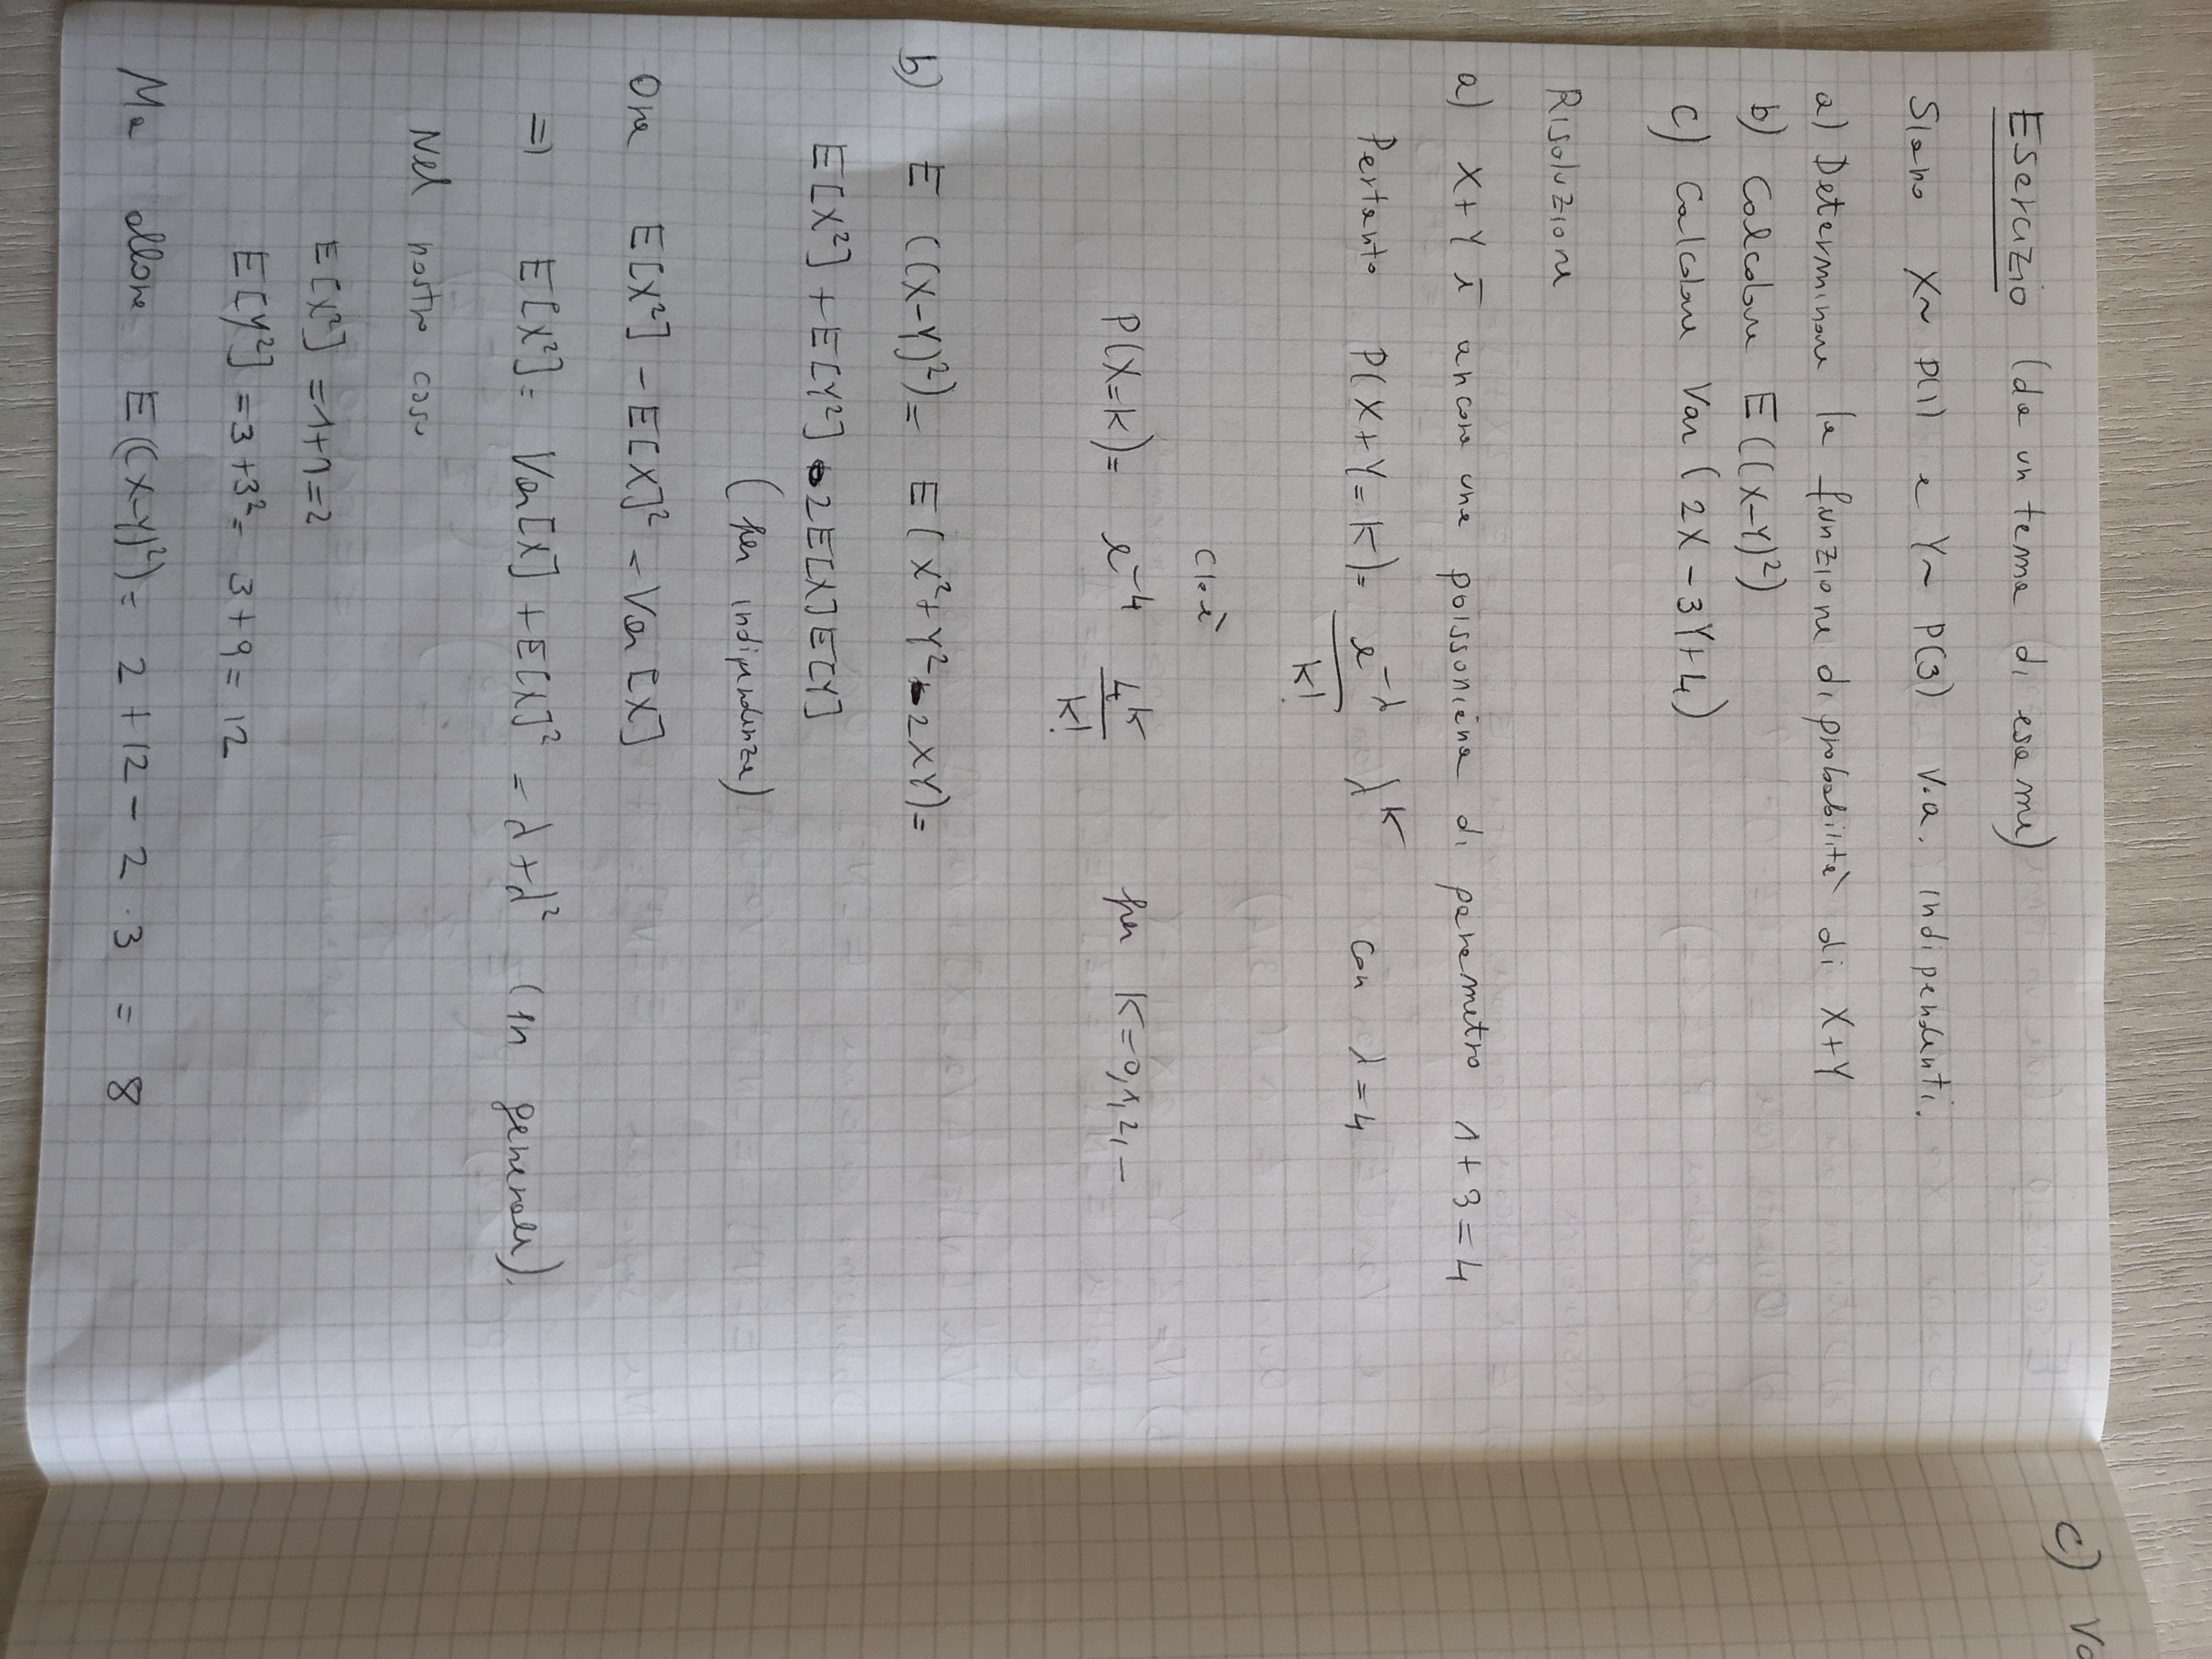 Esercizio (da un tema di esame)
Siano X~ P(1) e Y~ P(3) v.a. indipendenti.
a) Determinare la funzione di probabilità di X+Y
b) Calcolare E((X-Y)²)
c) Calcolare Var (2X-3Y+4)
Risoluzione
a) X+Y è ancora una poissoniana di parametro 1+3=4
Pertanto P(X+Y=K)= e^-λ/K! λ^K con λ=4
Cioè
P(X=K)= e^-4 4^K/K! per K=0,1,2,...
b) E ((X-Y)²)= E(X²+Y²-2XY)=
E[X²]+E[Y²]-2E[X]E[Y]
(per indipendenza)
Ora E[X²]-E[X]²=Var[X]
=> E[X²]= Var[X]+E[X]²=λ+λ² (in generale).
Nel nostro caso
E[X²]=1+1=2
E[Y²]=3+3²= 3+9=12
Ma allora E((X-Y)²)= 2+12-2·3 = 8
c) Va